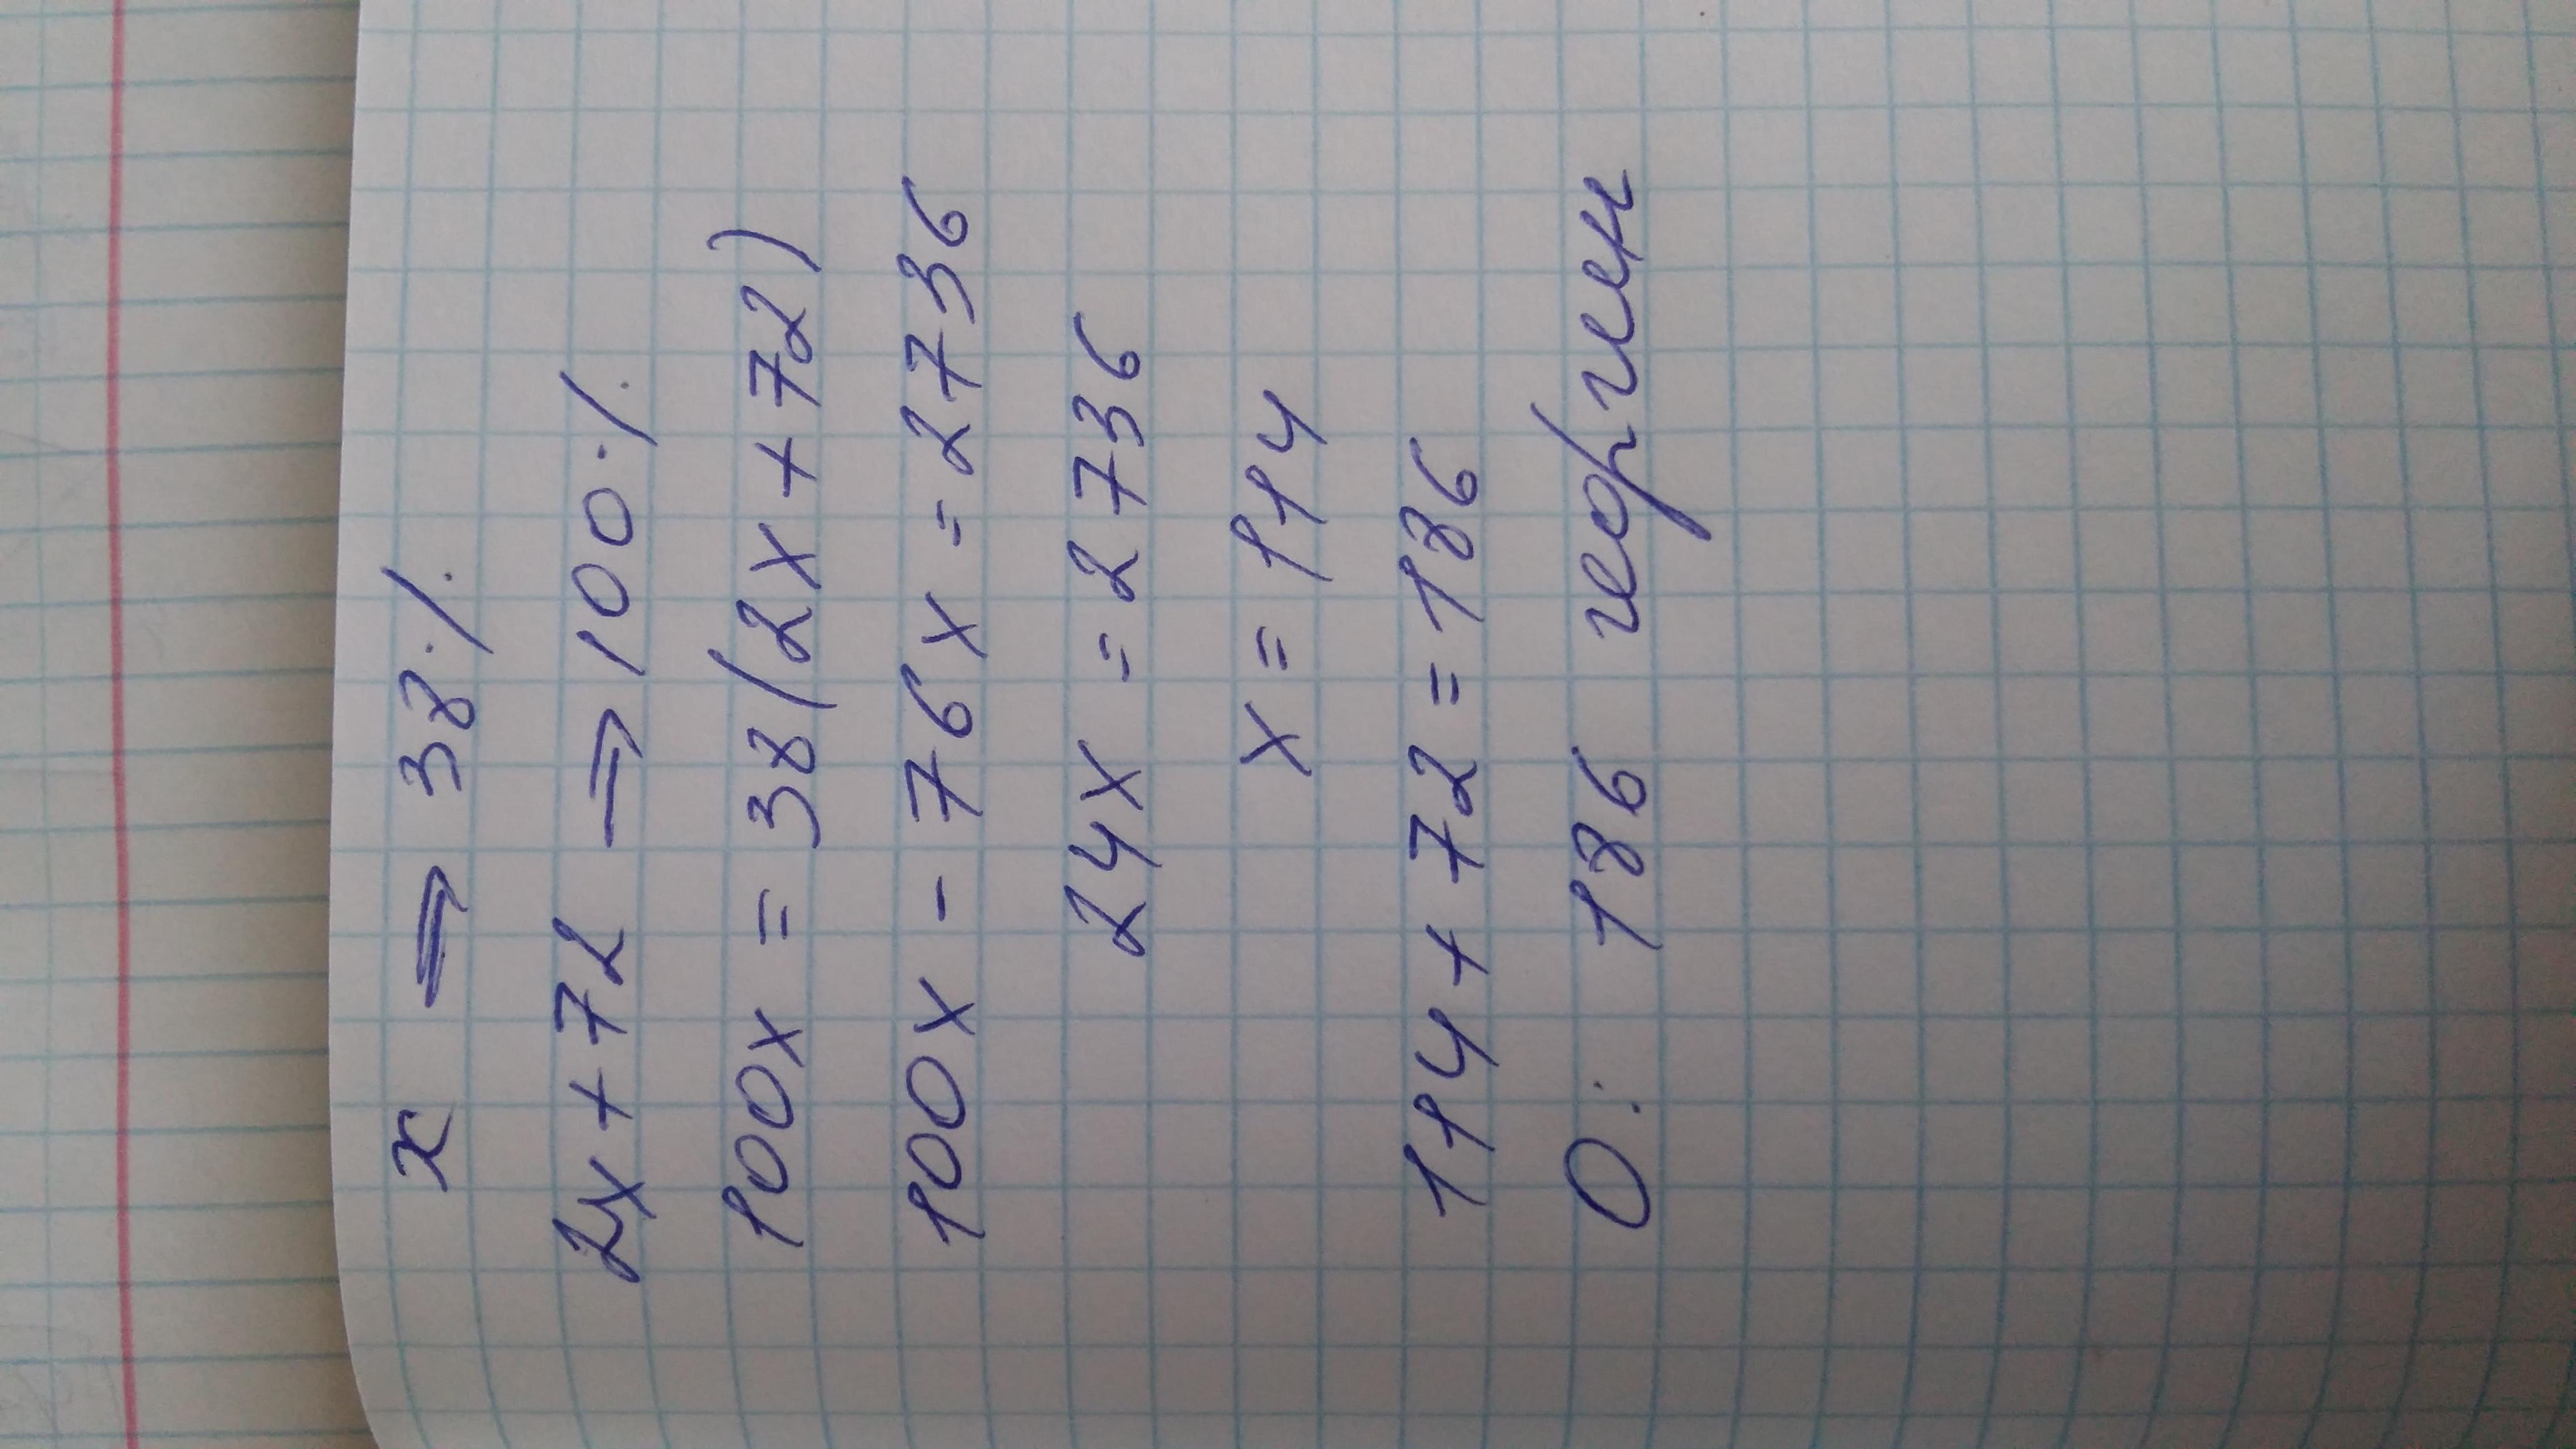 x ⇒ 38%
2x + 72 ⇒ 100%
100x = 38(2x + 72)
100x - 76x = 2736
24x = 2736
x = 114
114 + 72 = 186
О: 186 георгин